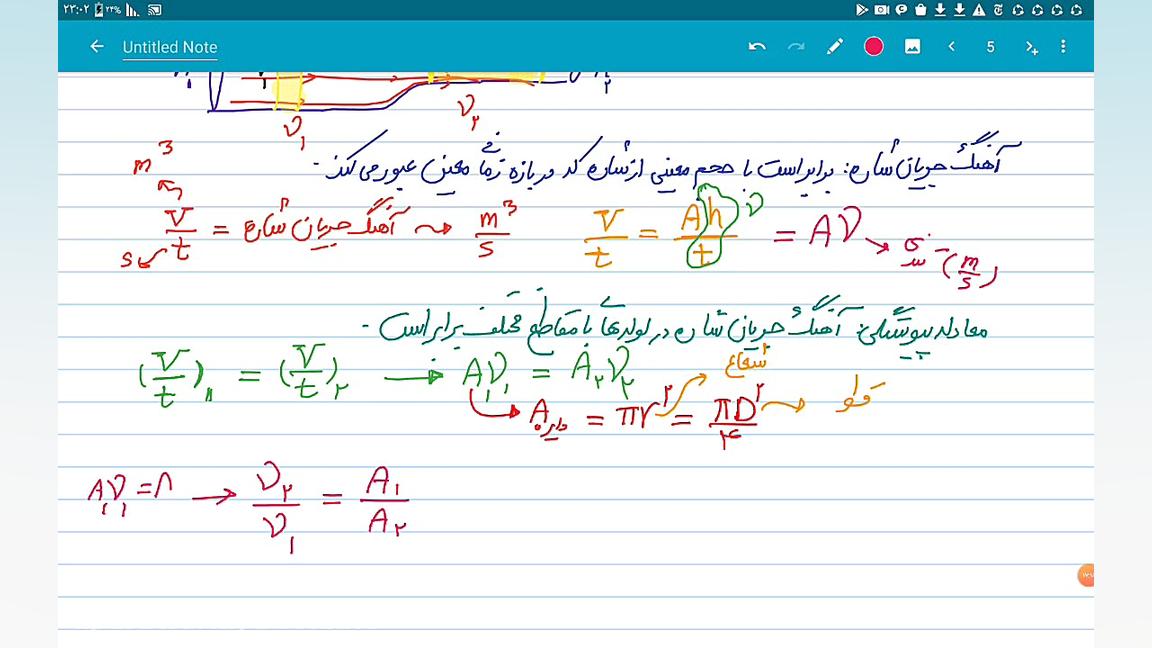 ۲۳:۰۲ ۲۴%
Untitled Note 5
υ₁ υ₂
آهنگ جریان شاره: برابر است با حجم معینی از شاره که در بازه زمانی معین عبور می‌کند.
m³
V/t = آهنگ جریان شاره → m³/s
s
V/t = Ah/t = Aυ
υ
(m/s)
معادله پیوستگی: آهنگ جریان شاره در لوله‌ها با مقاطع مختلف برابر است.
(V/t)₁ = (V/t)₂ → A₁υ₁ = A₂υ₂
شعاع
A دایره = πr² = πD²/۴
A₁υ₁ = → υ₂/υ₁ = A₁/A₂